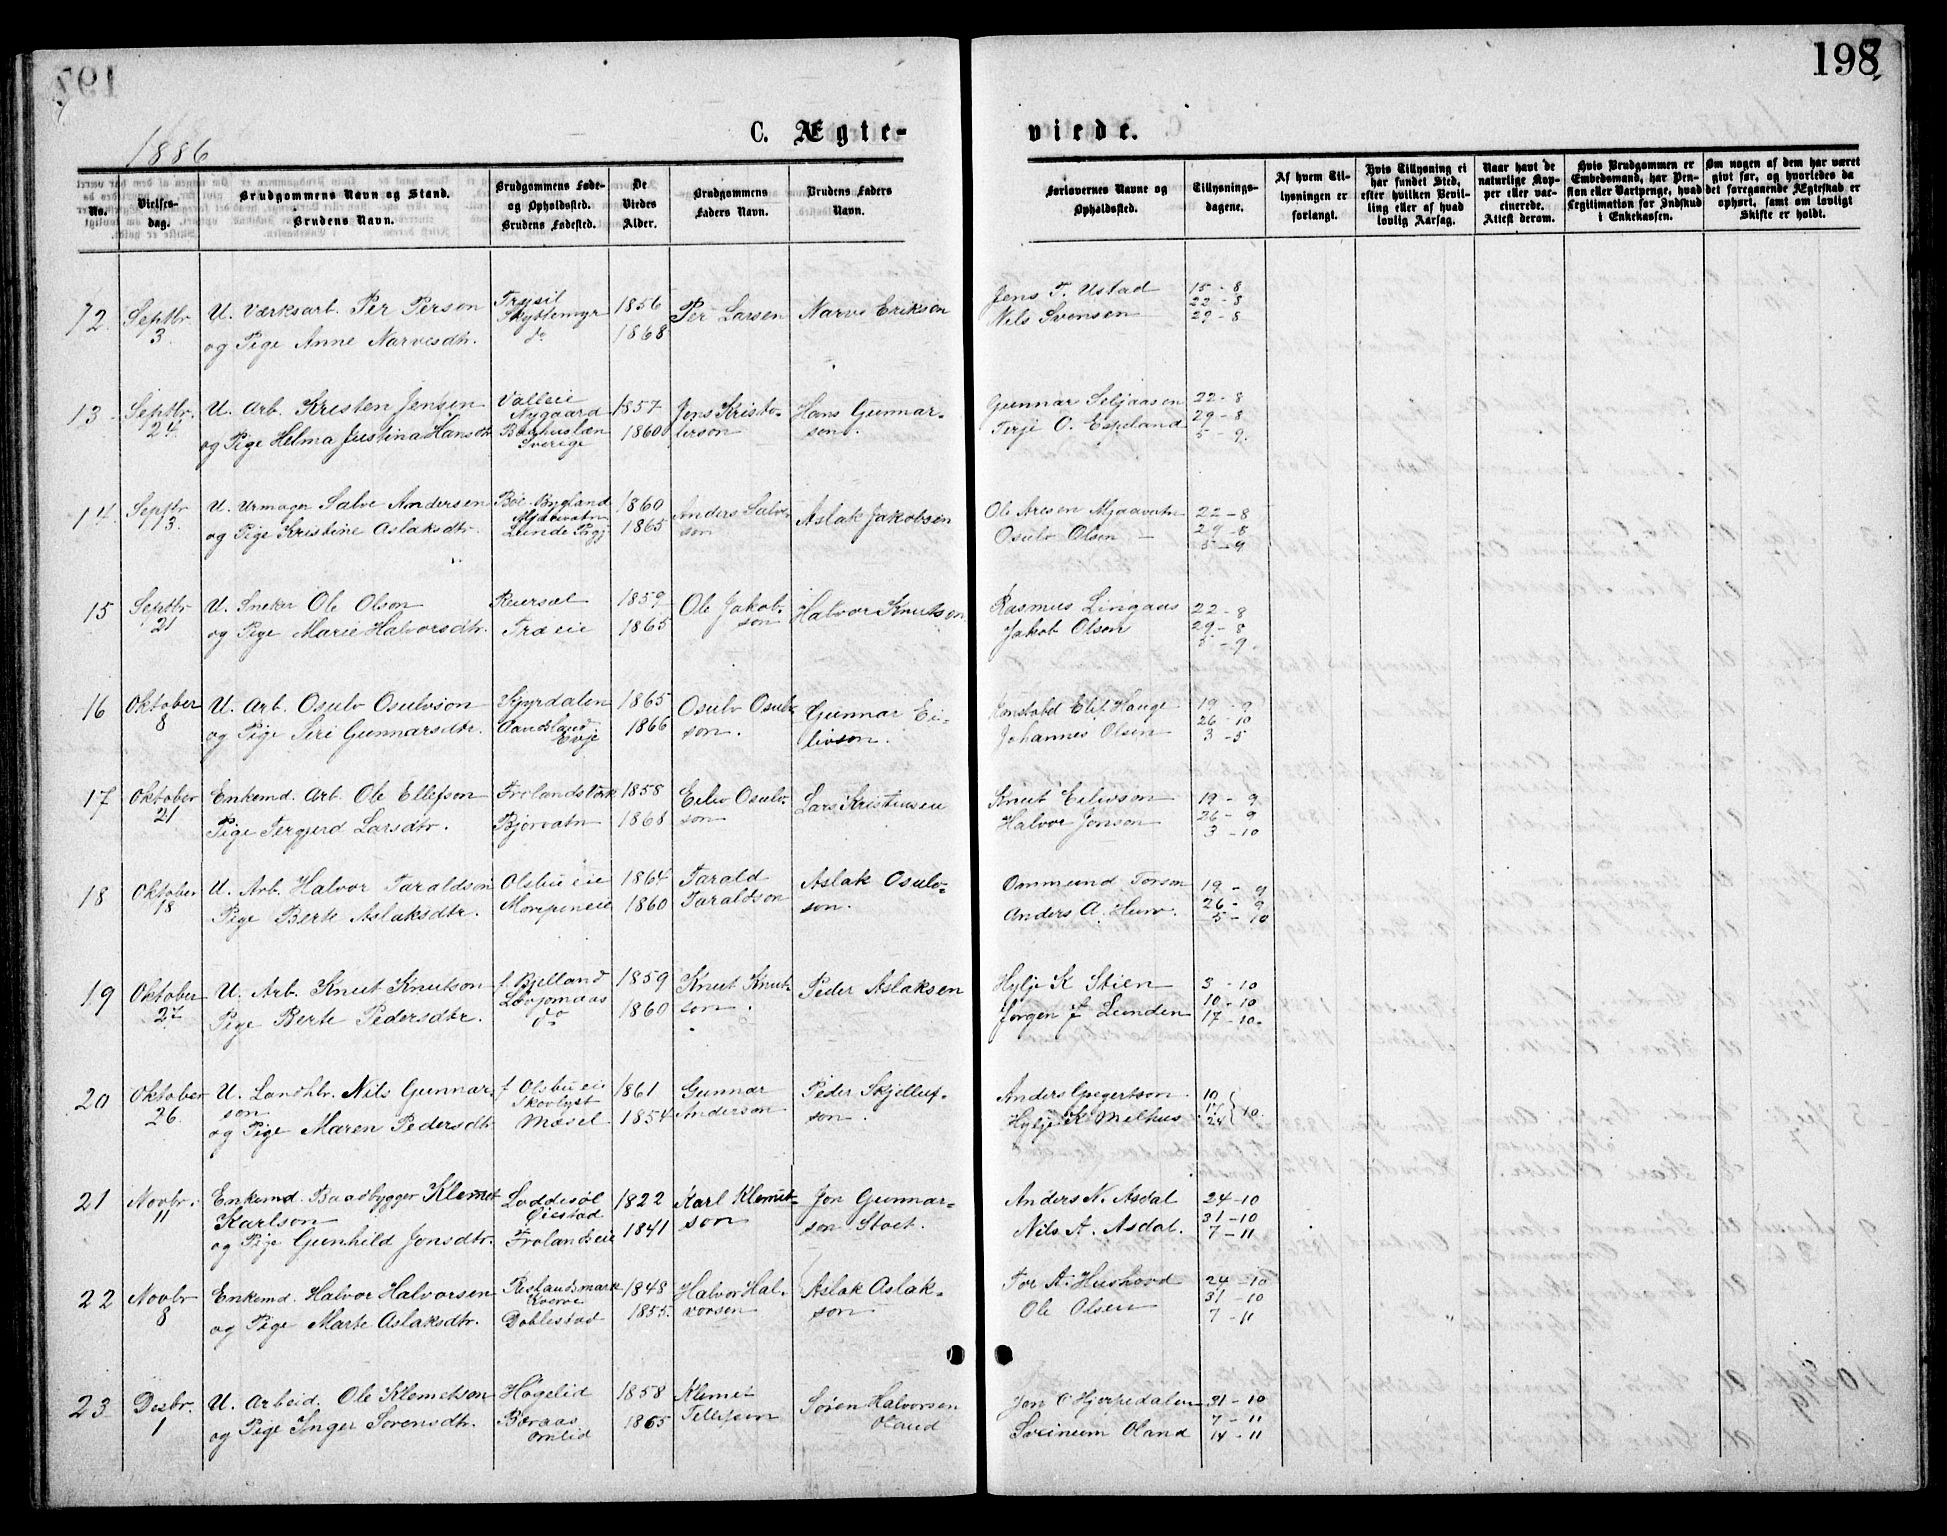 198
1886
C. Ægte-
viede.
No.
Vielses-
dag.
Brudgommens Navn og Stand.
Brudens Navn.
Brudgommens Føde-
og Opholdssted.
Brudens Fødested.
De
Viedes
Alder.
Brudgommens
Faders Navn.
Brudens Faders
Navn.
Forlovernes Navne og
Opholdssted.
Tillysnings-
dagene.
Af hvem Til-
lysningen er
forlangt.
Hvis Tillysning ei
har fundet Sted,
efter hvilken Bevil-
ling eller af hvad
lovlig Aarsag.
Naar havt de
naturlige Kop-
per eller vac-
cinerede.
Attest derom.
Hvis Brudgommen er
Embedsmand, har Pen-
sion eller Vartpenge, hvad
Legitimation for Indskud
i Enkekassen.
Om nogen af dem har været
gift før, og hvorledes da
det foregaaende Ægteskab er
ophørt, samt om lovligt
Skifte er holdt.
12. Septbr. 3.
U. Værksarb. Per Person
og Pige Anne Narvesdtr.
Trysil
Skyttemyr
do
1856
1868
Per Larsen
Narve Erikson
Jens T. Ustad
Nils Svensen
15-8
22-8
29-8
13 Septbr. 24.
U. Arb. Kristen Jensen
og Pige Helma Justina Hansdtr
Valleie
Nygaard
Baahuslæn
Sverige
1857
1860
Jens Kristo-
ferson
Hans Gunnar-
son.
Gunnar Seljaasen
Terje O. Espeland
22-8
29-8
5-9.
14. Septbr 13.
U. Urmagr Salve Andersen
og Pige Kristine Aslaksdtr.
Bøe Bygland
Mjaavatn
Lunde Prgj
1860
1865
Anders Salve-
son
Aslak Jakobsen
Ole Aresen Mjaavatn
Osulv Olsen —
22-8
29-8
5-9
15 Septbr 21
U. Sneker Ole Olson
og Pige Marie Halvorsdtr.
Reiersøl
Træ eie
1859
1865
Ole Jakob-
son
Halvor Knutson
Rasmus Lingaas
Jakob Olsen
22-8
29-8
5-9.
16 Oktober 8
U. Arb. Osulv Osulvson
og Pige Siri Gunnarsdtr.
Evje
1865
1866
Osulv Osulv-
son.
Gunnar Ei-
livson.
Konstabel Elif Hauge
Johannes Olsen
19-9
26-10
3-5
17 Oktober 21
Enkemd. Arb. Ole Ellefson
Pige Tergjerd Larsdtr.
Frolandsværk
Bjorvatn
1858
1868
Eiliv Osulv-
son
Lars Kristensen
Knut Eilivson
Halvor Jonson
19-9
26-9
3-10
18 Oktober 18
U. Arb. Halvor Taraldson
Pige Berte Aslaksdtr.
Olsbu eie
1864
1860
Tarald
Taraldson
Aslak Osulv-
son.
Ommund Torson
Anders A. Hurv.
19-9
26-9
5-10
19 Oktober 27
U. Arb. Knut Knutson
Pige Berte Pedersdtr.
f. Bjelland
Løvjomaas
do
1859
1860
Knut Knut-
son.
Peder Aslaksen
Hylje K Stien
Jørgen J Lunden
3-10
10-10
17-10.
20 Oktober 26.
U. Landhbr. Nils Gunnar-
son
og Pige Maren Pedersdtr
f Olsbu eie
Skovlyst
Mæsel
1861
1854
Gunnar
Anderson
Peder Skjelluf-
son.
Anders Gregertson
Hylje K Melhus
10
17
24 } 10.
21 Novbr. 11
Enkemd. Baadbygger Klemet
Karlson
og Pige Gunhild Jonsdtr.
Loddesøl
Øiestad
Frolandseie
1822
1841
Karl Klemet-
son
Jon Gunnar-
son Stoet.
Anders N. Asdal
Nils A. Asdal.
24-10
31-10
7-11
22 Novbr 8
Enkemd. Halvor Halvorsen
og Pige Marte Aslaksdtr.
Rislandsmark
Kverve
Doblestad
1848
1855.
Halvor Hal-
vorsen
Aslak Aslak-
son
Tor A. Hushovd
Ole Olsen
24-10
31-10
7-11
23 Desbr. 1
U. Arbeid. Ole Klemetson
og Pige Inger Sorensdtr.
Høgelid
Bæraas
Omlid
1858
1865
Klemet
Tellefson
Søren Halvorsen
Oland
Jon O Hjerpedalen
Oland
31-10
7-11
14-11